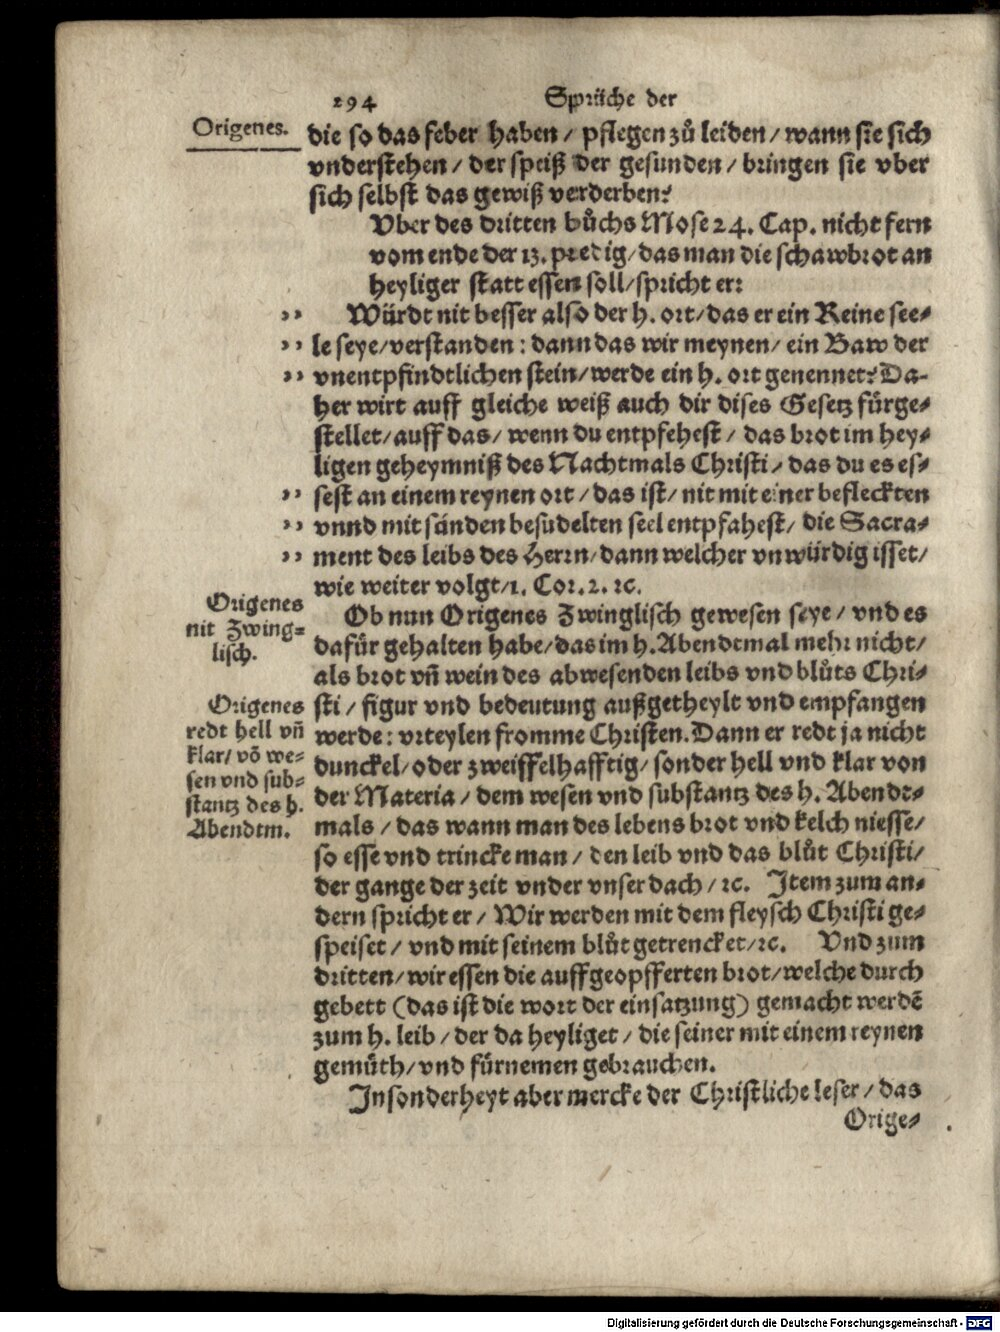 294 Sprüche der
Origenes.
die so das feber haben / pflegen zů leiden / wann sie sich
vnderstehen / der speiß der gesunden / bringen sie vber
sich selbst das gewiß verderben?
Vber des dritten bůchs Mose 24. Cap. nicht fern
vom ende der 13. predig / das man die schawbrot an
heyliger statt essen soll / spricht er:
" Würdt nit besser also der h. ort / das er ein Reine see⸗
" le seye / verstanden : dann das wir meynen / ein Baw der
" vnentpfindtlichen stein / werde ein h. ort genennet? Da-
her wirt auff gleiche weiß auch dir dises Gesetz fürge⸗
stellet / auff das / wenn du entpfehest / das brot im hey⸗
ligen geheymniß des Nachtmals Christi / das du es es⸗
" sest an einem reynen ort / das ist / nit mit einer befleckten
" vnnd mit sünden besudelten seel entpfahest / die Sacra⸗
" ment des leibs des Herrn / dann welcher vnwürdig isset /
wie weiter volgt / 1. Cor. 2. ꝛc.
Origenes
nit Zwing⸗
lisch.
Ob nun Origenes Zwinglisch gewesen seye / vnd es
dafür gehalten habe / das im h. Abendtmal mehr nicht /
als brot vñ wein des abwesenden leibs vnd blůts Chri⸗
Origenes
redt hell vñ
klar / võ we⸗
sen vnd sub⸗
stantz des h.
Abendtm.
sti / figur vnd bedeutung außgetheylt vnd empfangen
werde : vrteylen fromme Christen. Dann er redt ja nicht
dunckel / oder zweiffelhafftig / sonder hell vnd klar von
der Materia / dem wesen vnd substantz des h. Abendt⸗
mals / das wann man des lebens brot vnd kelch niesse /
so esse vnd trincke man / den leib vnd das blůt Christi /
der gange der zeit vnder vnser dach / ꝛc. Item zum an⸗
dern spricht er / Wir werden mit dem fleysch Christi ge⸗
speiset / vnd mit seinem blůt getrencket / ꝛc. Vnd zum
dritten / wir essen die auffgeopfferten brot / welche durch
gebett (das ist die wort der einsatzung) gemacht werdē
zum h. leib / der da heyliget / die seiner mit einem reynen
gemůth / vnd fürnemen gebrauchen.
Insonderheyt aber mercke der Christliche leser / das
Orige⸗
Digitalisierung gefördert durch die Deutsche Forschungsgemeinschaft - DFG